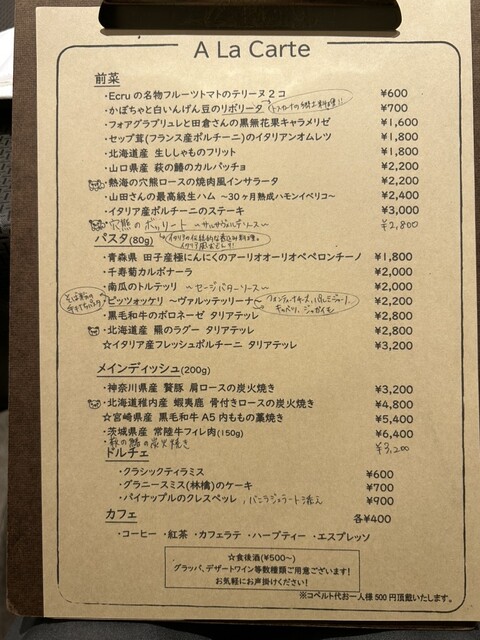 A La Carte
前菜
・Ecruの名物フルーツトマトのテリーヌ2コ ¥600
・かぼちゃと白いんげん豆のリボリータ トスカーナの郷土料理!! ¥700
・フォアグラブリュレと田倉さんの黒無花果キャラメリゼ ¥1,600
・セップ茸(フランス産ポルチーニ)のイタリアンオムレツ ¥1,800
・北海道産 生ししゃものフリット ¥1,800
・山口県産 萩の鰆のカルパッチョ ¥2,200
・熱海の穴熊ロースの焼肉風インサラータ ¥2,200
・山田さんの最高級生ハム ～30ヶ月熟成ハモンイベリコ～ ¥2,400
・イタリア産ポルチーニのステーキ ¥3,000
・穴熊のボッリート ～サルサヴェルデソース～ ¥2,800
パスタ(80g) イタリアの伝統的な煮込み料理。
・青森県 田子産極にんにくのアーリオオーリオペペロンチーノ ¥1,800
・千寿葱カルボナーラ ¥2,000
・南瓜のトルテッリ ～セージバターソース～ ¥2,000
そば粉の手打ちパスタ ・ピッツォッケリ ～ヴァルッテッリーナ～ ¥2,200
キャベツ、ジャガイモ
・黒毛和牛のボロネーゼ タリアテッレ ¥2,800
・北海道産 羆のラグー タリアテッレ ¥2,800
☆イタリア産フレッシュポルチーニ タリアテッレ ¥3,200
メインディッシュ(200g)
・神奈川県産 贅豚 肩ロースの炭火焼き ¥3,200
・北海道稚内産 蝦夷鹿 骨付きロースの炭火焼き ¥4,800
☆宮崎県産 黒毛和牛 A5内ももの藁焼き ¥5,400
・茨城県産 常陸牛フィレ肉(150g) ¥6,400
・萩の鰆の炭火焼き ¥3,200
ドルチェ
・クラシックティラミス ¥600
・グラニースミス(林檎)のケーキ ¥700
・パイナップルのクレスペッレ , バニラジェラート添え ¥900
カフェ 各¥400
・コーヒー ・紅茶 ・カフェラテ ・ハーブティー ・エスプレッソ
☆食後酒(¥500～)
グラッパ、デザートワイン等数種類ご用意ございます!
お気軽にお声掛けください!
※コペルト代お一人様500円頂戴いたします。